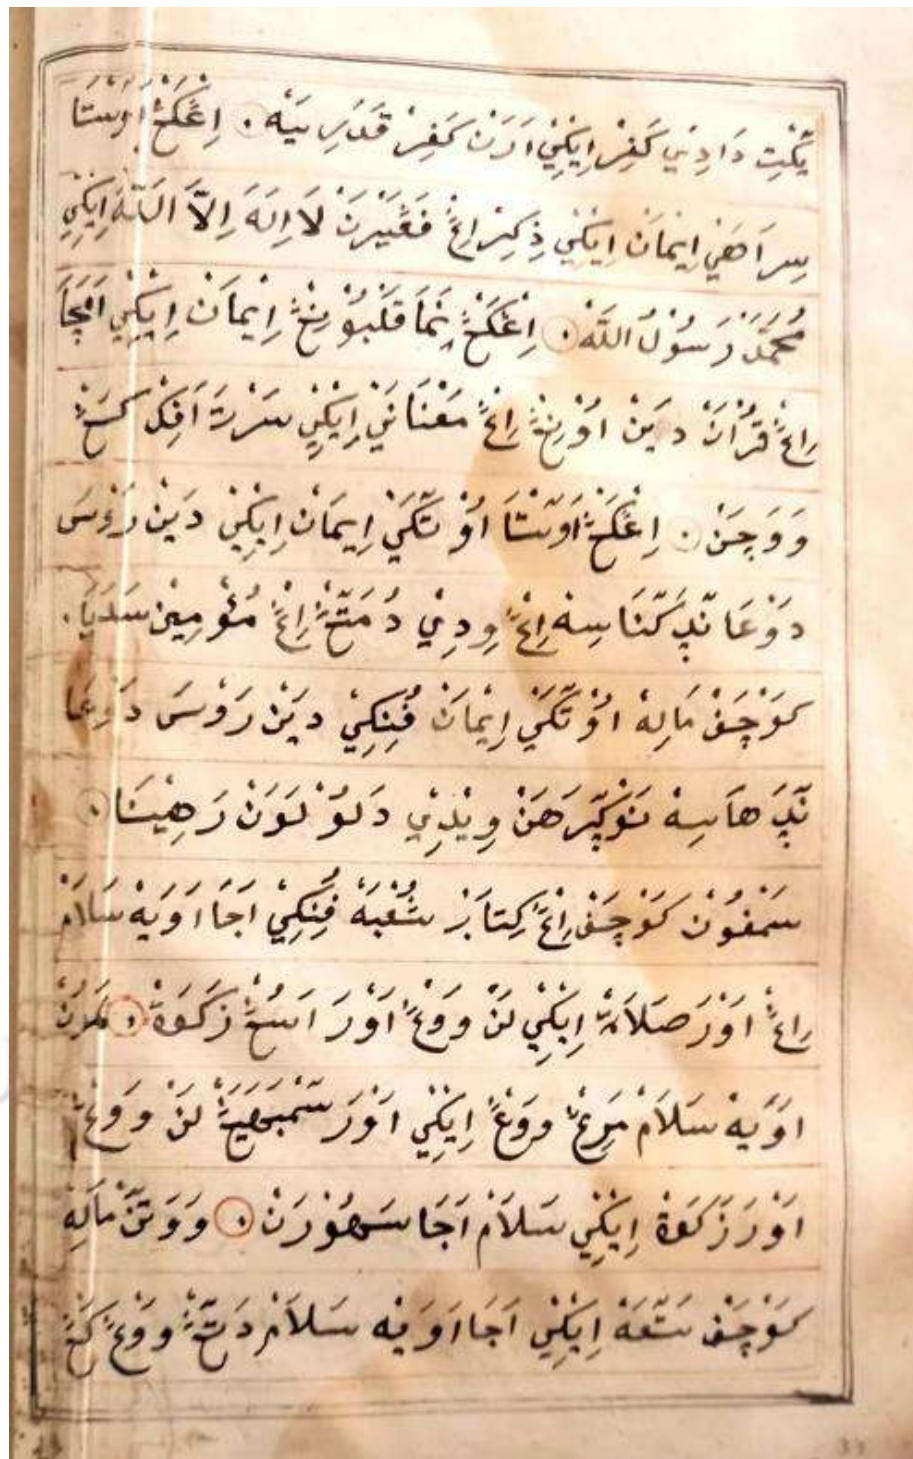 يكّتِ دَادِنيْ كَفِرْ اِيكِيْ اَرَنْ كَفِرْ قَدَرِيَهْ ۰ اِڠكَڠْ اَوَسْتَا
سِرَاهَيْ اِيْمَانْ اِيكِيْ ذِكِرْ اِڠْ فَڠَيْرَنْ لَااِلَهَ اِلاَّ اللّٰهْ اِيكِيْ
مُحَمَّدْ رَسُوْلُ اللّٰهْ ۰ اِڠْكَڠْ نِمَا قَلْبُوْنِڠْ اِيْمَانْ اِيكِيْ اَمَچَا
اِڠْ قُرْاَنْ دَيَنْ اَوْنِڠْ اِڠْ مَعْنَانَيْ اِيكِيْ سَرْتَ اَفِكْ كَڠْ
وَوَچَنْ ۰ اِڠْكَڠْ اَوَسْتَا اَوْ تَكَيْ اِيمَانْ اِيكِيْ دَيَنْ رَوْسَ
دَوْعَا نَڮَ كَنَا سِهْ اِڠْ وِدِيْ دُمَتَڠْ اِڠْ مُؤْمِيْن سَدَيَا.
كَوْچَفْ مَالِهْ اَوْ تَكَيْ اِيْمَانْ فُنِكِيْ دَيَنْ رَوْسَ دَوْعَا
نَڮَ هَاسِهْ نَوْكِرَهَنْ وِيْدِيْ دَلَوْ لَوَنْ رَهِيْنَا ۰
سَمْفُوْنْ كَوْچَفْ اِڠْ كِتَابْ شُعْبَهْ فُنِكِيْ اَجَا اَوَيَهْ سَلَامْ
اِڠْ اَوْرَ صَلَاةْ اِيكِيْ لَنْ وَوْڠْ اَوْرَ اَسُڠْ زَكَوةْ ۰ مَرَنْ
اَوَيَهْ سَلَامْ مَرِڠْ وَوَڠْ اِيكِيْ اَوْرَ سَمْبَهْيَڠْ لَنْ وَوَڠْ
اَوْرَ زَكَوةْ اِيكِيْ سَلَامْ اَجَا سَهَوْرَنْ ۰ وَوَنْتَنْ مَالِهْ
كَوْچَفْ سَتْعَهْ اِيكِيْ اَجَا اَوَيَهْ سَلَامْ دَتَڠْ وَوْڠْ كَڠْ